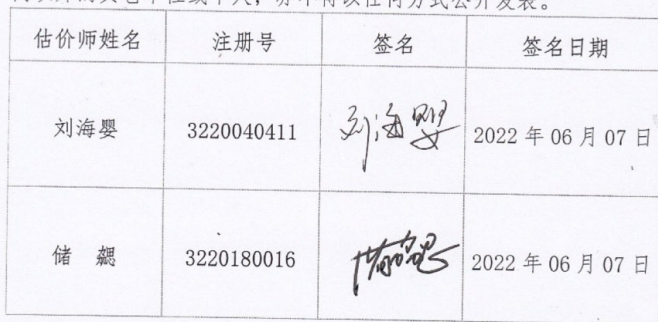 估价师姓名 注册号 签名 签名日期
刘海婴 3220040411 刘海婴 2022年06月07日
储 勰 3220180016 储勰 2022年06月07日